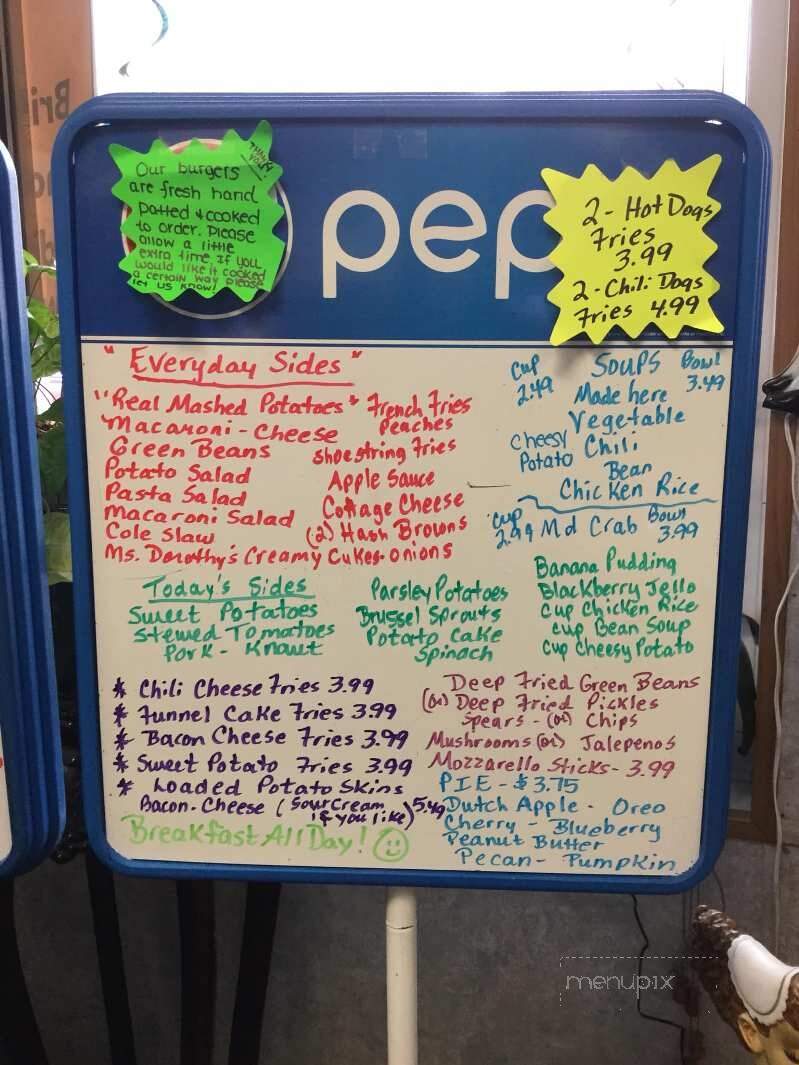 Our burgers
are fresh hand
patted & cooked
to order. Please
allow a little
extra time. If you
would like it cooked
a certain way please
let us know!
THANK
YOU!
pep
2 - Hot Dogs
Fries
3.99
2 - Chili Dogs
Fries 4.99
"Everyday Sides"
"Real Mashed Potatoes"
Macaroni - Cheese
Green Beans
Potato Salad
Pasta Salad
Macaroni Salad
Cole Slaw
Ms. Dorothy's Creamy Cukes-onions
French Fries
Peaches
Shoestring Fries
Apple Sauce
Cottage Cheese
(2) Hash Browns
Cup
2.49
Soups
Bowl
3.49
Made here
Vegetable
Cheesy
Potato
Chili
Bean
Chicken Rice
Cup
2.99
Md Crab
Bowl
3.99
Today's Sides
Sweet Potatoes
Stewed Tomatoes
Pork - Kraut
Parsley Potatoes
Brussel Sprouts
Potato Cake
Spinach
Banana Pudding
Blackberry Jello
Cup Chicken Rice
Cup Bean Soup
Cup Cheesy Potato
* Chili Cheese Fries 3.99
* Funnel Cake Fries 3.99
* Bacon Cheese Fries 3.99
* Sweet Potato Fries 3.99
* Loaded Potato Skins
Bacon-Cheese (Sour Cream
if you like) 5.49
Breakfast All Day!
Deep Fried Green Beans
(or) Deep Fried Pickles
Spears - (or) Chips
Mushrooms (or) Jalepenos
Mozzarello Sticks - 3.99
PIE - $3.75
Dutch Apple - Oreo
Cherry - Blueberry
Peanut Butter
Pecan - Pumpkin
menupix